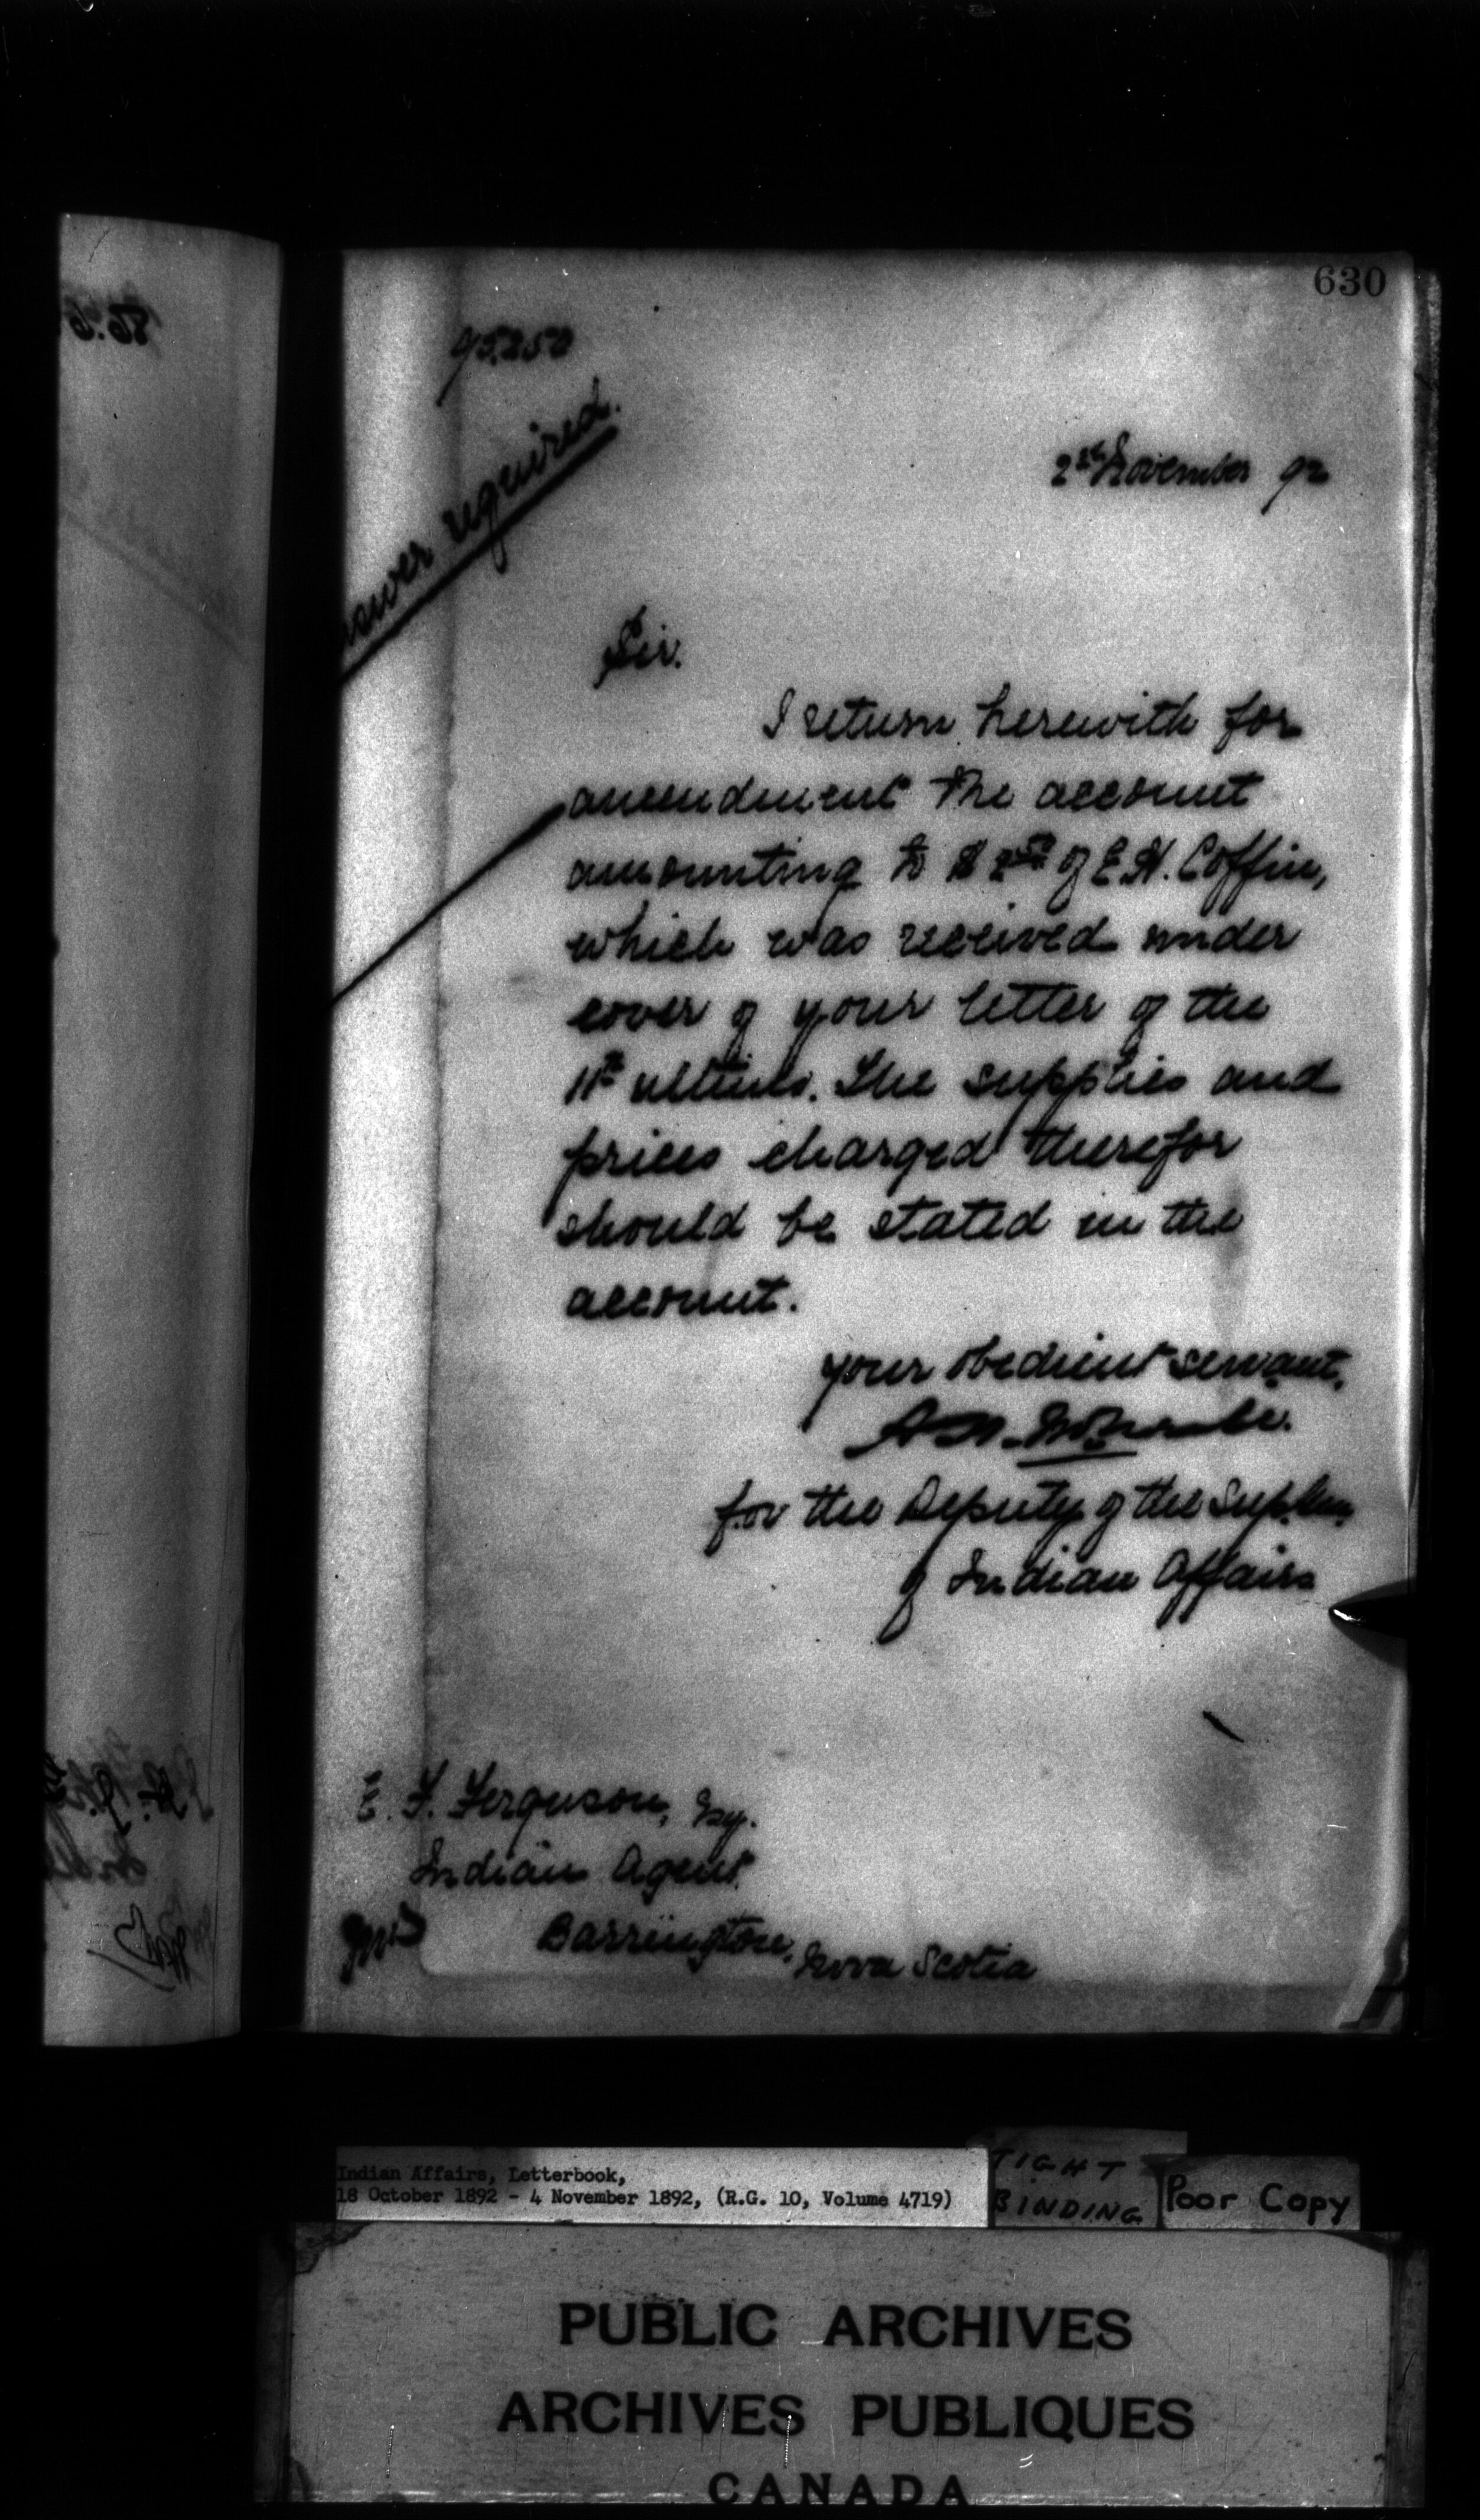 630
95.250
2nd November 92
required.
Sir.
I return herewith for
amendment the account
amounting to $ of E.H. Coffin,
which was received under
cover of your letter of the
11th ultimo. The supplies and
prices charged therefor
should be stated in the
account.
your obedient servant,
for the Deputy of the Supt. Gen.
of Indian Affairs
E. F. Ferguson, Esq.
Indian Agent
Barrington, Nova Scotia
Indian Affairs, Letterbook,
18 October 1892 - 4 November 1892, (R.G. 10, Volume 4719)
TIGHT
BINDING
Poor Copy
PUBLIC ARCHIVES
ARCHIVES PUBLIQUES
CANADA